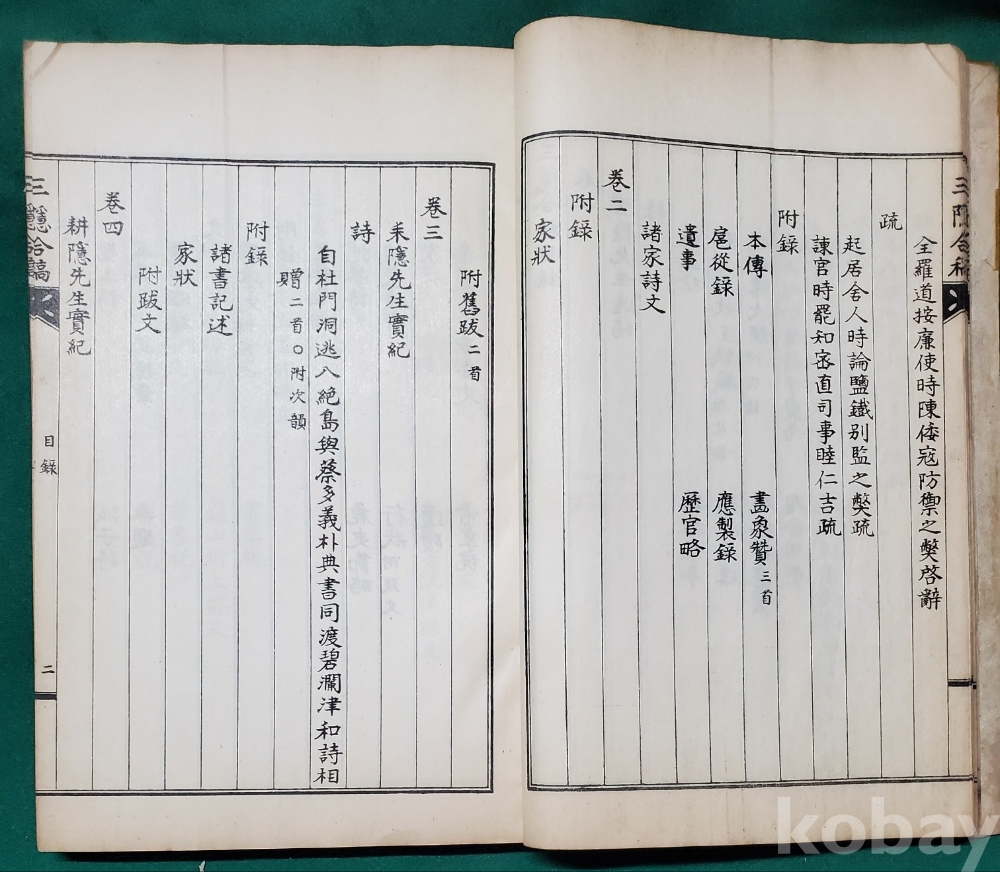 三隱合稿
全羅道按廉使時陳倭寇防禦之弊啓辭
疏
起居舍人時論鹽鐵別監之弊疏
諫官時罷知密直司事睦仁吉疏
附錄
本傳 畫象贊 三首
扈從錄 應製錄
遺事 歷官略
諸家詩文
卷二
附錄
家狀
附舊跋 二首
卷三
耒隱先生實紀
詩
自杜門洞逃入絶島與蔡多義朴典書同渡碧瀾津和詩相
贈 二首○附次韻
附錄
諸書記述
家狀
附跋文
卷四
耕隱先生實紀
三隱合稿 目錄 二
kobay